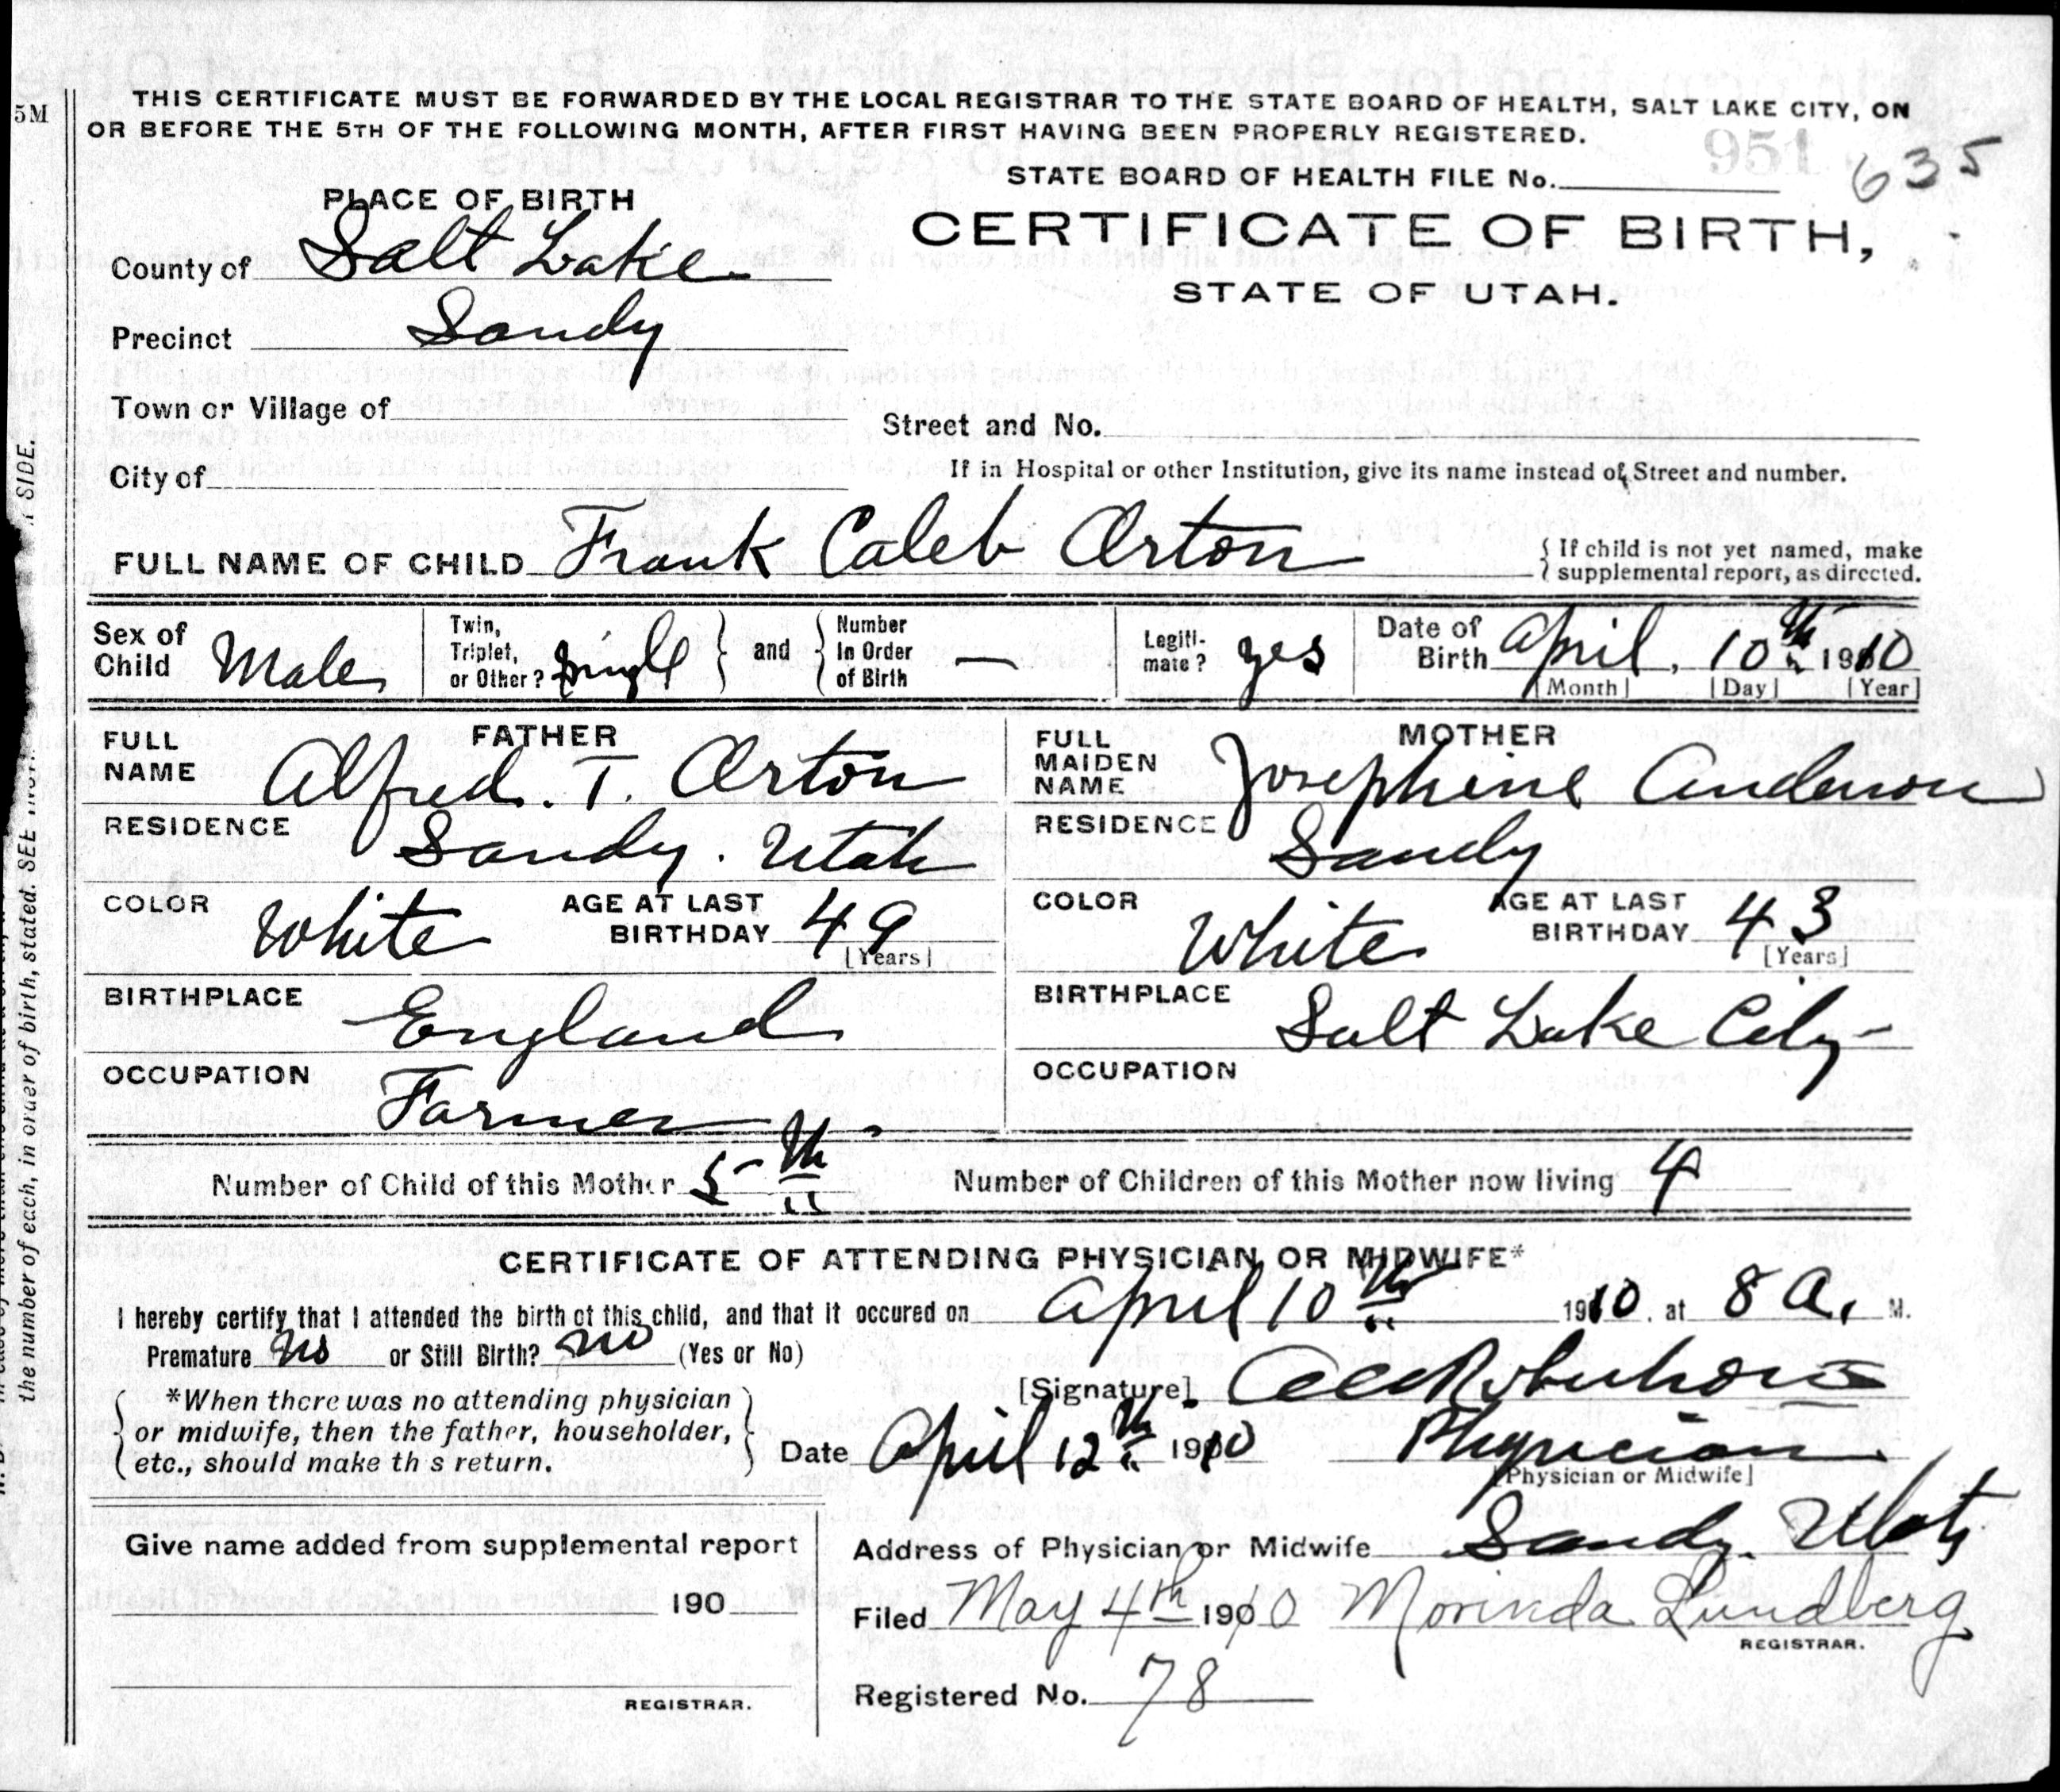 5M
THIS CERTIFICATE MUST BE FORWARDED BY THE LOCAL REGISTRAR TO THE STATE BOARD OF HEALTH, SALT LAKE CITY, ON
OR BEFORE THE 5TH OF THE FOLLOWING MONTH, AFTER FIRST HAVING BEEN PROPERLY REGISTERED.
951 635
STATE BOARD OF HEALTH FILE No.
PLACE OF BIRTH
CERTIFICATE OF BIRTH,
STATE OF UTAH.
County of Salt Lake
Precinct Sandy
Town or Village of
Street and No.
City of
If in Hospital or other Institution, give its name instead of Street and number.
FULL NAME OF CHILD Frank Caleb Orton
{ If child is not yet named, make
supplemental report, as directed.
Sex of Child Male
Twin, Triplet, or Other? single } and { Number In Order of Birth —
Legiti-mate? yes
Date of Birth April, 10th 1910
[Month] [Day] [Year]
FATHER
FULL NAME Alfred. T. Orton
RESIDENCE Sandy. Utah
COLOR White AGE AT LAST BIRTHDAY 49
[Years]
BIRTHPLACE England
OCCUPATION Farmer
MOTHER
FULL MAIDEN NAME Josephine Anderson
RESIDENCE Sandy
COLOR White AGE AT LAST BIRTHDAY 43
[Years]
BIRTHPLACE Salt Lake City
OCCUPATION
Number of Child of this Mother 5th Number of Children of this Mother now living 4
CERTIFICATE OF ATTENDING PHYSICIAN OR MIDWIFE*
I hereby certify that I attended the birth of this child, and that it occured on April 10th 1910. at 8 A. M.
Premature no or Still Birth? no (Yes or No)
[Signature]
{ *When there was no attending physician
or midwife, then the father, householder,
etc., should make this return. }
Date April 12th 1910 Physician
[Physician or Midwife]
Give name added from supplemental report
190
REGISTRAR.
Address of Physician or Midwife Sandy. Utah
Filed May 4th 1910 Morinda Lundberg
REGISTRAR.
Registered No. 78
SIDE.
the number of each, in order of birth, stated. SEE